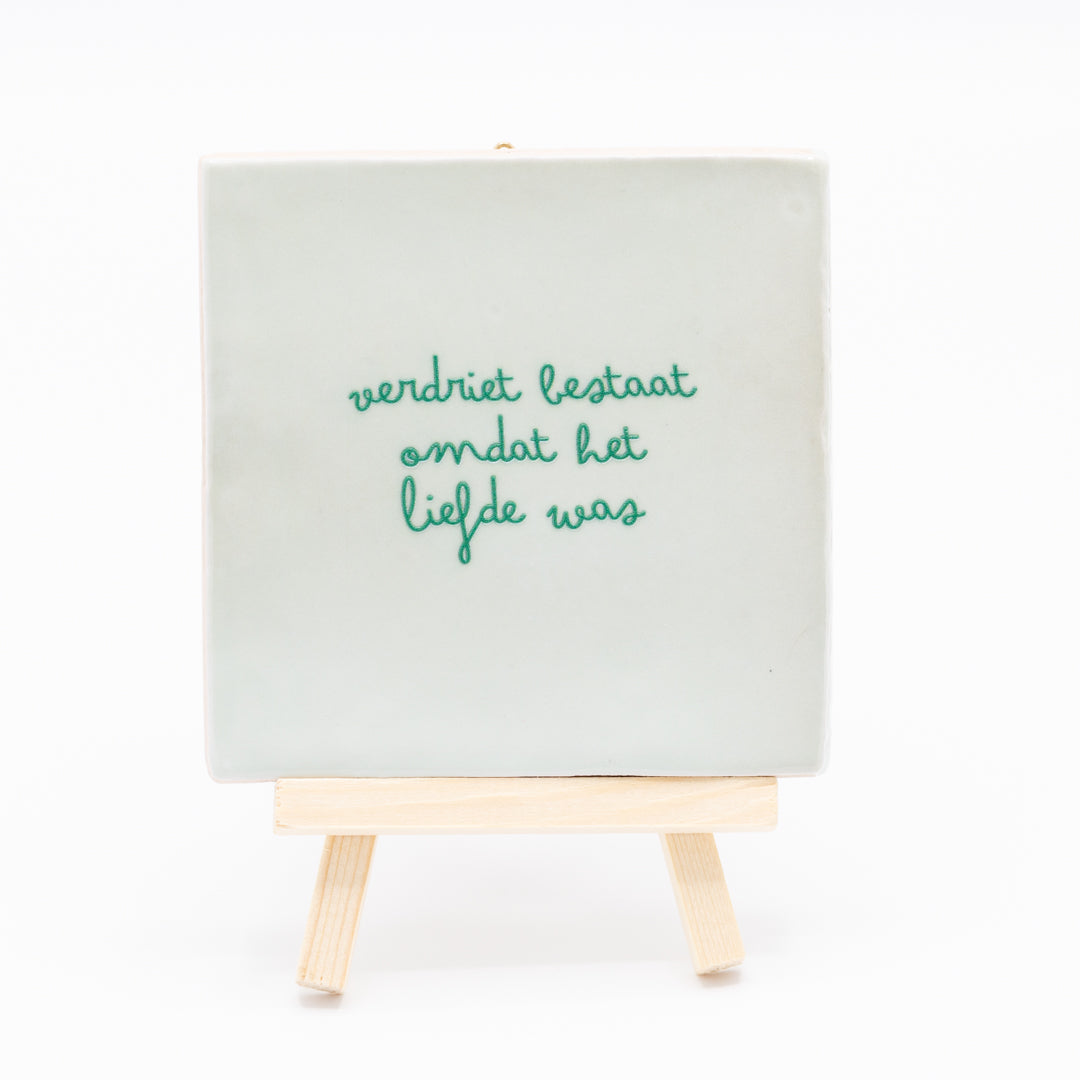 verdriet bestaat
omdat het
liefde was